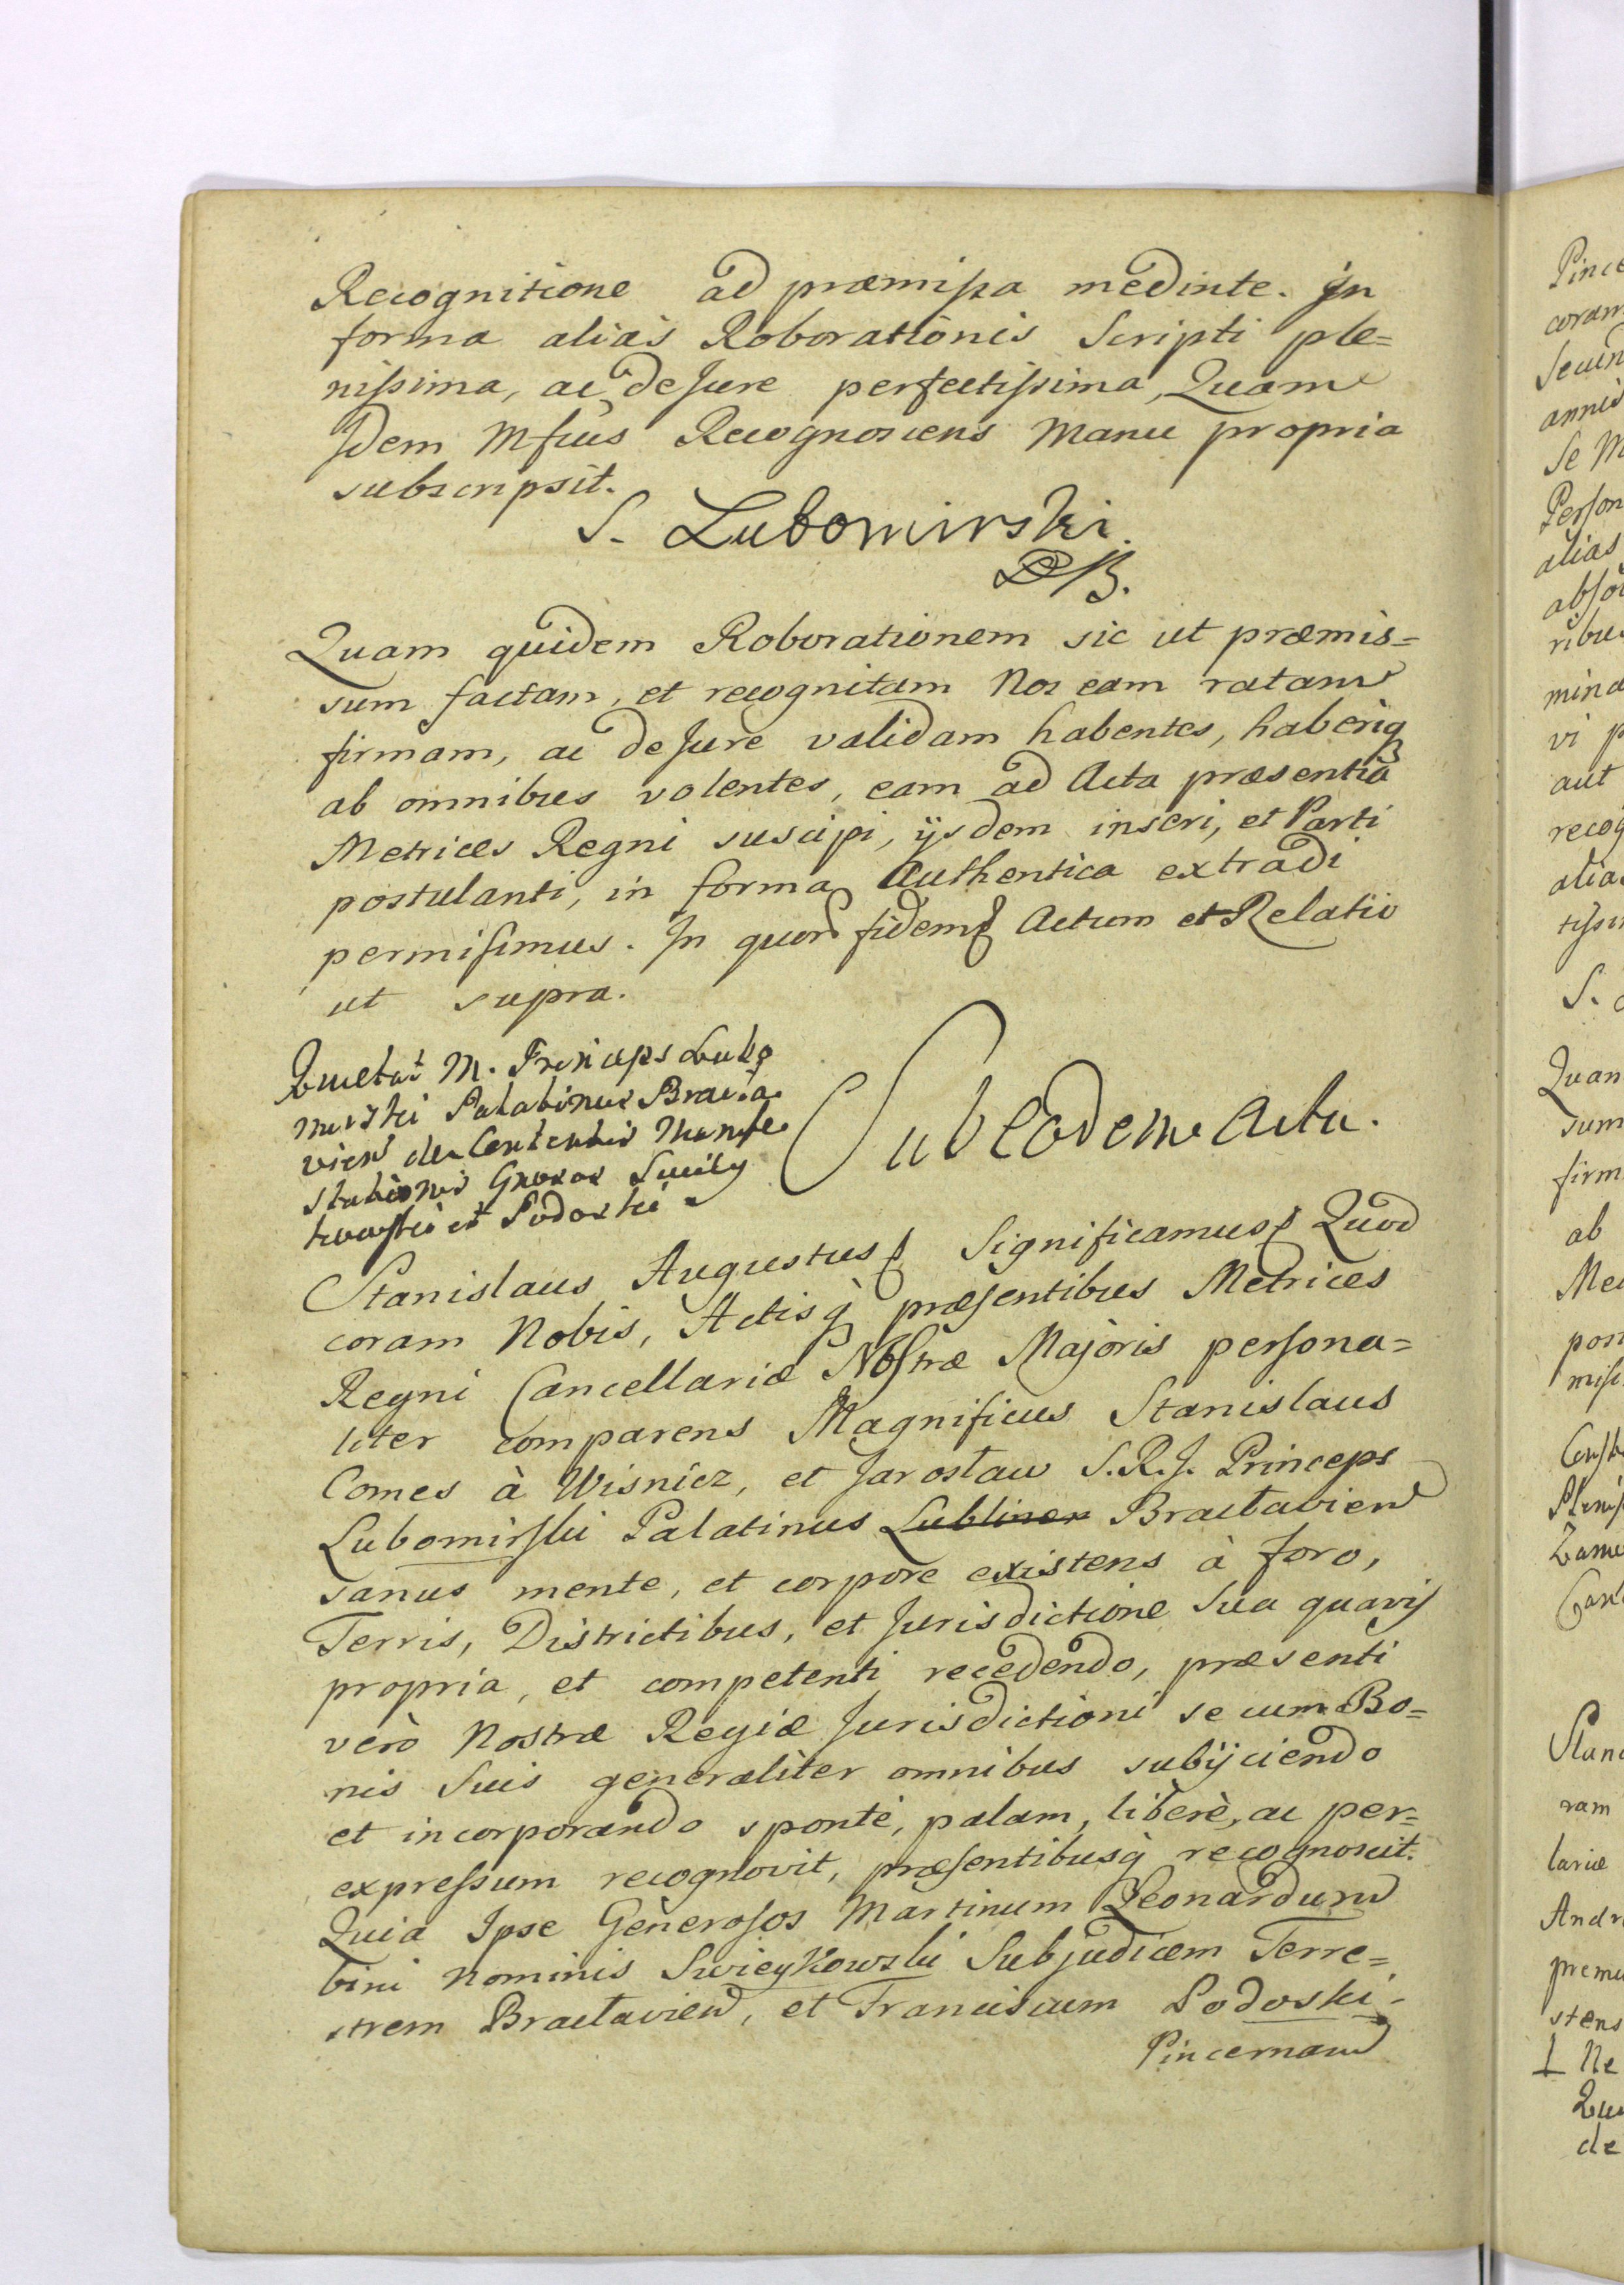 Recognitione ad præmissa medinte. In
forma alias Roborationis Scripti ple=
nissima, ac de Jure perfectissima, Quam
Idem Mfcus Recognoscens Manu propria
subscripsit.
S. Lubomirski
Quam quidem Roborationem sic ut præmis=
sum factam, et recognitam Nos eam ratam
firmam, ac de Jure validam habentes, haberiq
ab omnibus volentes, eam ad Acta præsentia
Metrices Regni suscipi, ijsdem inseri, et Parti
postulanti, in forma Authentica extradi
permisimus. In quor fidem Actum et Relatio
ut supra.
Quietat M. Princeps Lubo
mirski Palatinus Bracla
vien de Contentis Manife
stationis Gnosos Swiey
kowski et Podoski
Sub eodem Actu.
Stanislaus Augustus Significamus Quod
coram Nobis, Actisq præsentibus Metrices
Regni Cancellariæ Nostræ Majoris persona=
liter comparens Magnificus Stanislaus
Comes à Wisnicz, et Jarosław S.R.J. Princeps
Lubomirski Palatinus Lublinen Braclavien
sanus mente, et corpore existens à foro,
Terris, Districtibus, et Jurisdictione Sua quavis
propria, et competenti recedendo, præsenti
verò Nostræ Regiæ Jurisdictioni se cum Bo=
nis Suis generaliter omnibus subijciendo
et incorporando sponte, palam, liberè, ac per=
expressum recognovit, præsentibusq recognoscit.
Quia Ipse Generosos Martinum Leonardum
bini Nominis Swieykowski Subjudicem Terre=
strem Braclavien, et Franciscum Podoski
Pincernam